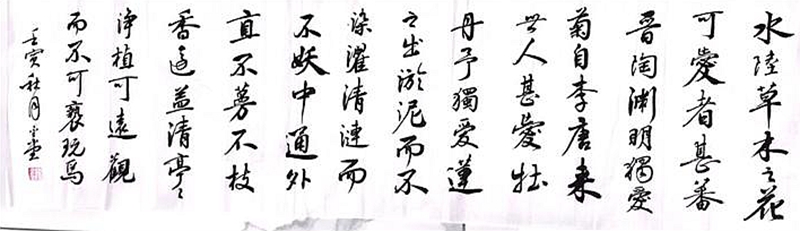 水陸草木之花
可愛者甚蕃
晋陶渊明獨愛
菊自李唐来
世人甚愛牡
丹予獨愛蓮
之出淤泥而不
染濯清漣而
不妖中通外
直不蔓不枝
香遠益清亭々
净植可遠觀
而不可褻玩焉
壬寅秋月